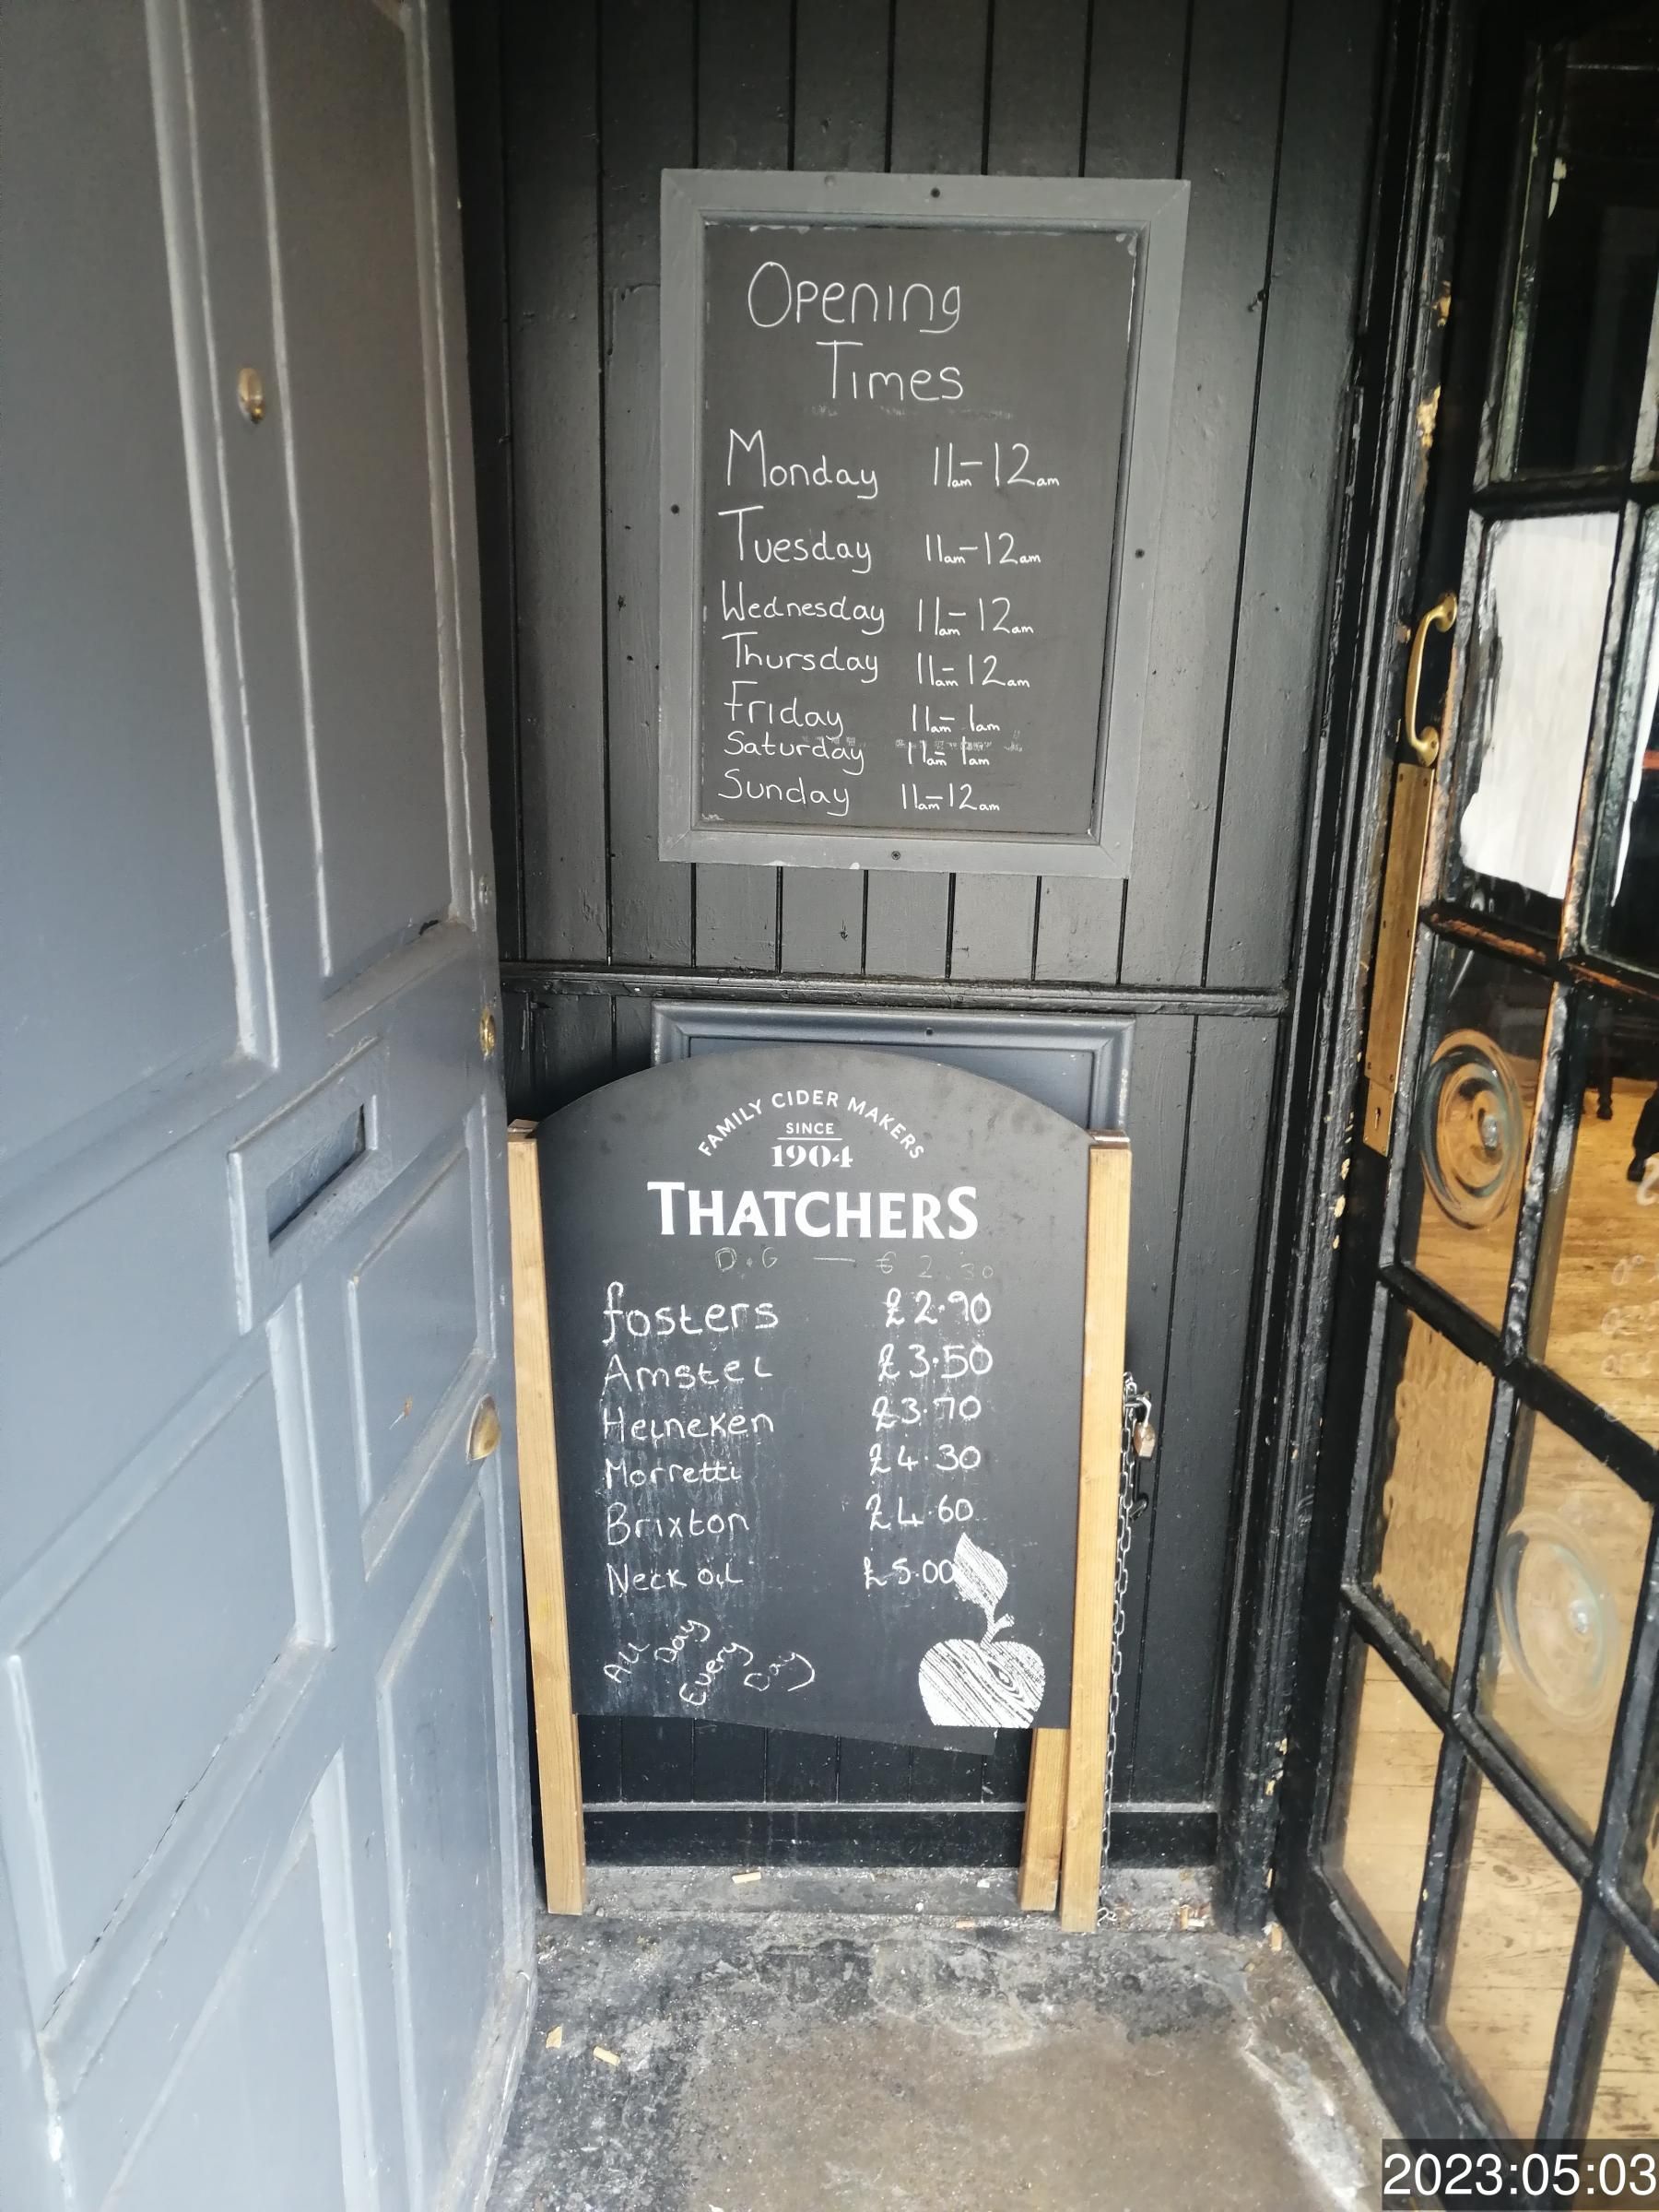 Opening
Times
Monday 11am-12am
Tuesday 11am-12am
Wednesday 11am-12am
Thursday 11am-12am
Friday 11am-1am
Saturday 11am-1am
Sunday 11am-12am
FAMILY CIDER MAKERS
SINCE
1904
THATCHERS
D.G — € 2.30
fosters £2.90
Amstel £3.50
Heineken £3.70
Morretti £4.30
Brixton £4.60
Neck oil £5.00
All Day
Every Day
2023:05:03